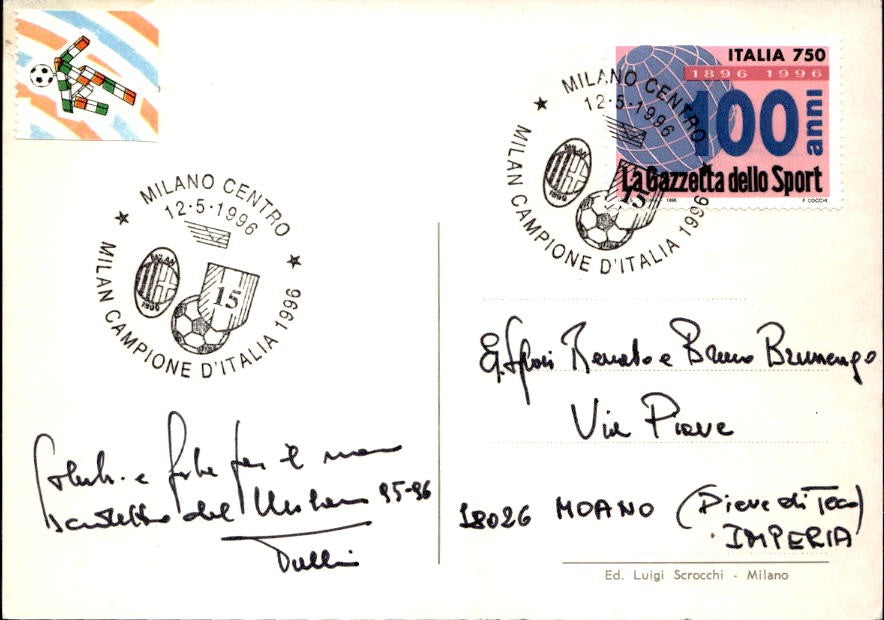 ITALIA 750
1896 1996
100 anni
La Gazzetta dello Sport
1996 F. COCCHI
MILANO CENTRO
12-5-1996
MILAN
1996
15
MILAN CAMPIONE D'ITALIA 1996
MILANO CENTRO
12-5-1996
MILAN
1996
15
MILAN CAMPIONE D'ITALIA 1996
Renato e Bruno Brunengo
Via Piave
18026 MOANO (Pieve di Teco)
IMPERIA
e per il
del Milan 95-96
Ed. Luigi Scrocchi - Milano